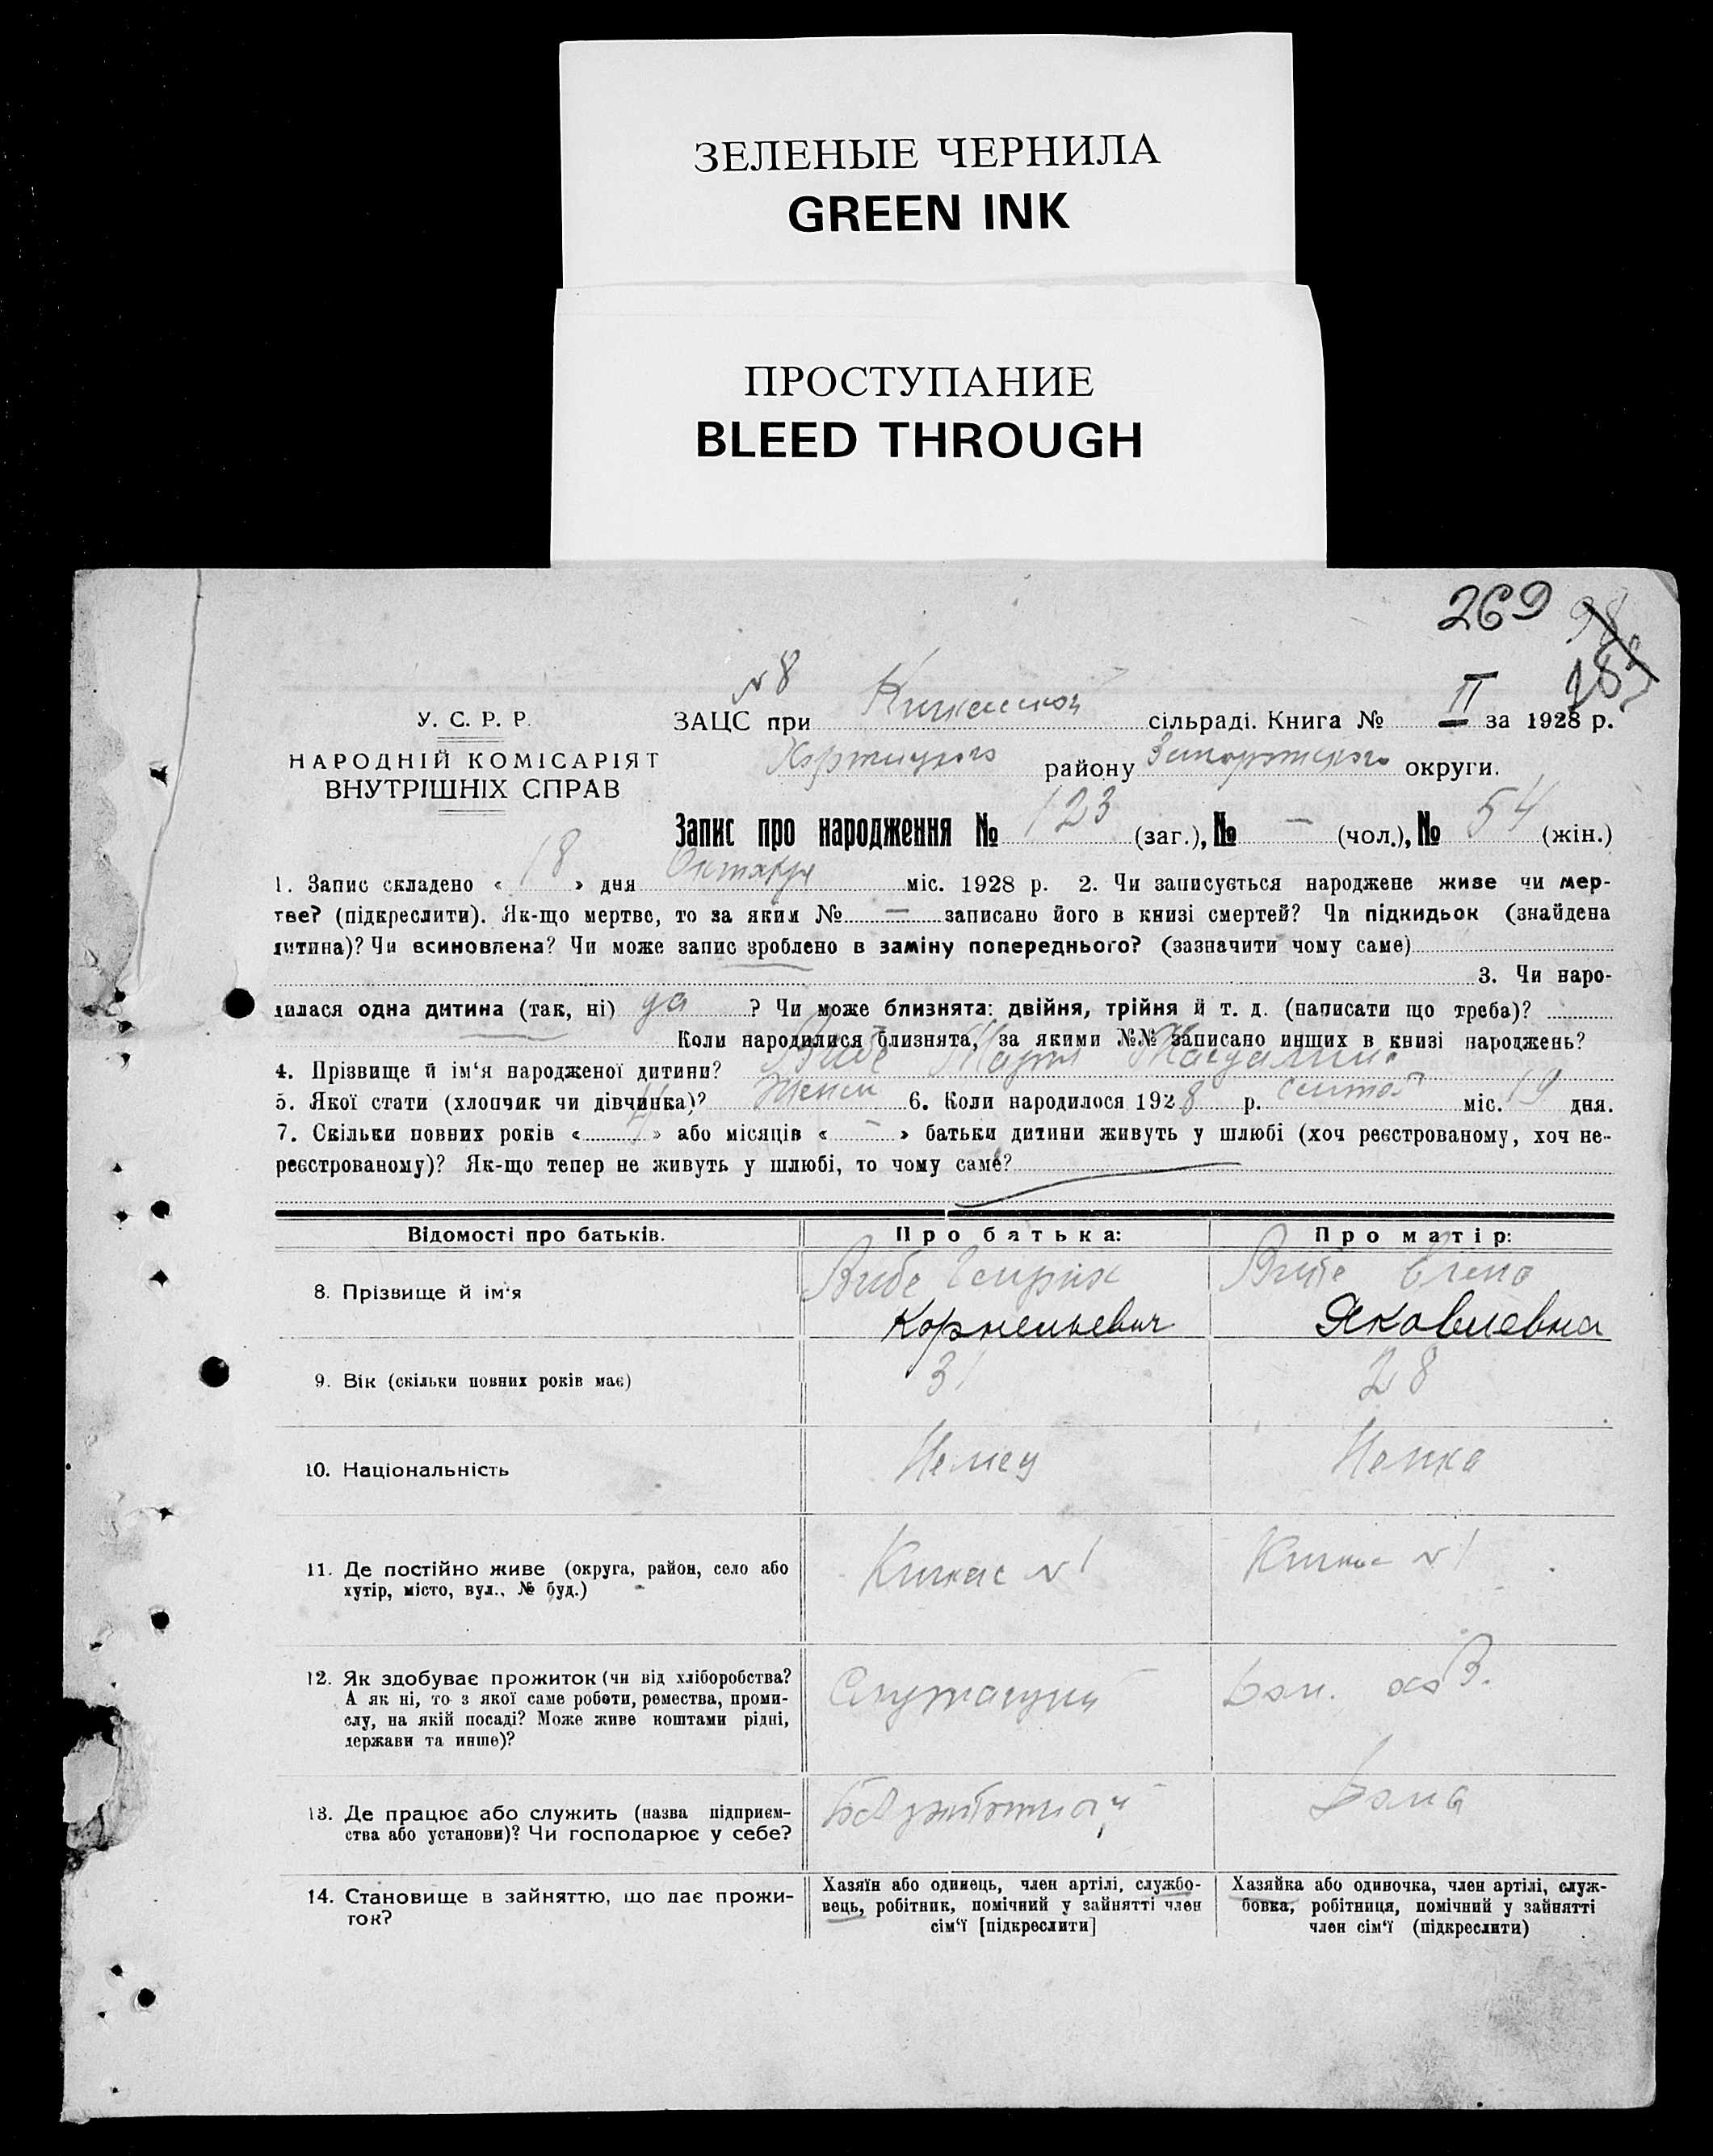 ЗЕЛЕНЫЕ ЧЕРНИЛА
GREEN INK
ПРОСТУПАНИЕ
BLEED THROUGH
269 98
№ 8
У. С. Р. Р.
НАРОДНІЙ КОМІСАРІЯТ
ВНУТРІШНІХ СПРАВ
ЗАЦС при Кичкасской сільраді. Книга № II за 1928 р.
Хортицкого району Запорожского округи.
Запис про народження № 123 (заг.), № — (чол.), № 54 (жін.)
1. Запис складено « 18 » дня Октября міс. 1928 р. 2. Чи записується народжене живе чи мер-
тве? (підкреслити). Як-що мертве, то за яким № — записано його в книзі смертей? Чи підкидьок (знайдена
дитина)? Чи всиновлена? Чи може запис зроблено в заміну попереднього? (зазначити чому саме)
3. Чи наро-
дилася одна дитина (так, ні) да ? Чи може близнята: двійня, трійня й т. д. (написати що треба)?
Коли народилися близнята, за якими №№ записано инших в книзі народжень?
4. Прізвище й ім‘я народженої дитини? Вибе Мария Магдалина
5. Якої стати (хлопчик чи дівчинка)? Женск 6. Коли народилося 1928 р. сентяб міс. 19 дня.
7. Скільки повних років « 4 » або місяців « — » батьки дитини живуть у шлюбі (хоч реєстрованому, хоч не-
реєстрованому)? Як-що тепер не живуть у шлюбі, то чому саме?
Відомості про батьків. Про батька: Про матір:
8. Прізвище й ім‘я Вибе Генрих Вибе Елена
Корнельевич Яковлевна
9. Вік (скільки повних років має) 31 28
10. Національність Немец Немка
11. Де постійно живе (округа, район, село або
хутір, місто, вул., № буд.) Кичкас № 1 Кичкас № 1
12. Як здобуває прожиток (чи від хліборобства?
А як ні, то з якої саме роботи, ремества, проми-
слу, на якій посаді? Може живе коштами рідні,
держави та инше)? Служащий Дом. хоз.
13. Де працює або служить (назва підприєм-
ства або установи)? Чи господарює у себе? Безработный Дома
14. Становище в зайняттю, що дає прожи-
ток?
Хазяїн або одинець, член артілі, службо-
вець, робітник, помічний у зайнятті член
сім‘ї [підкреслити]
Хазяйка або одиночка, член артілі, служ-
бовка, робітниця, помічний у зайнятті
член сім‘ї (підкреслити)